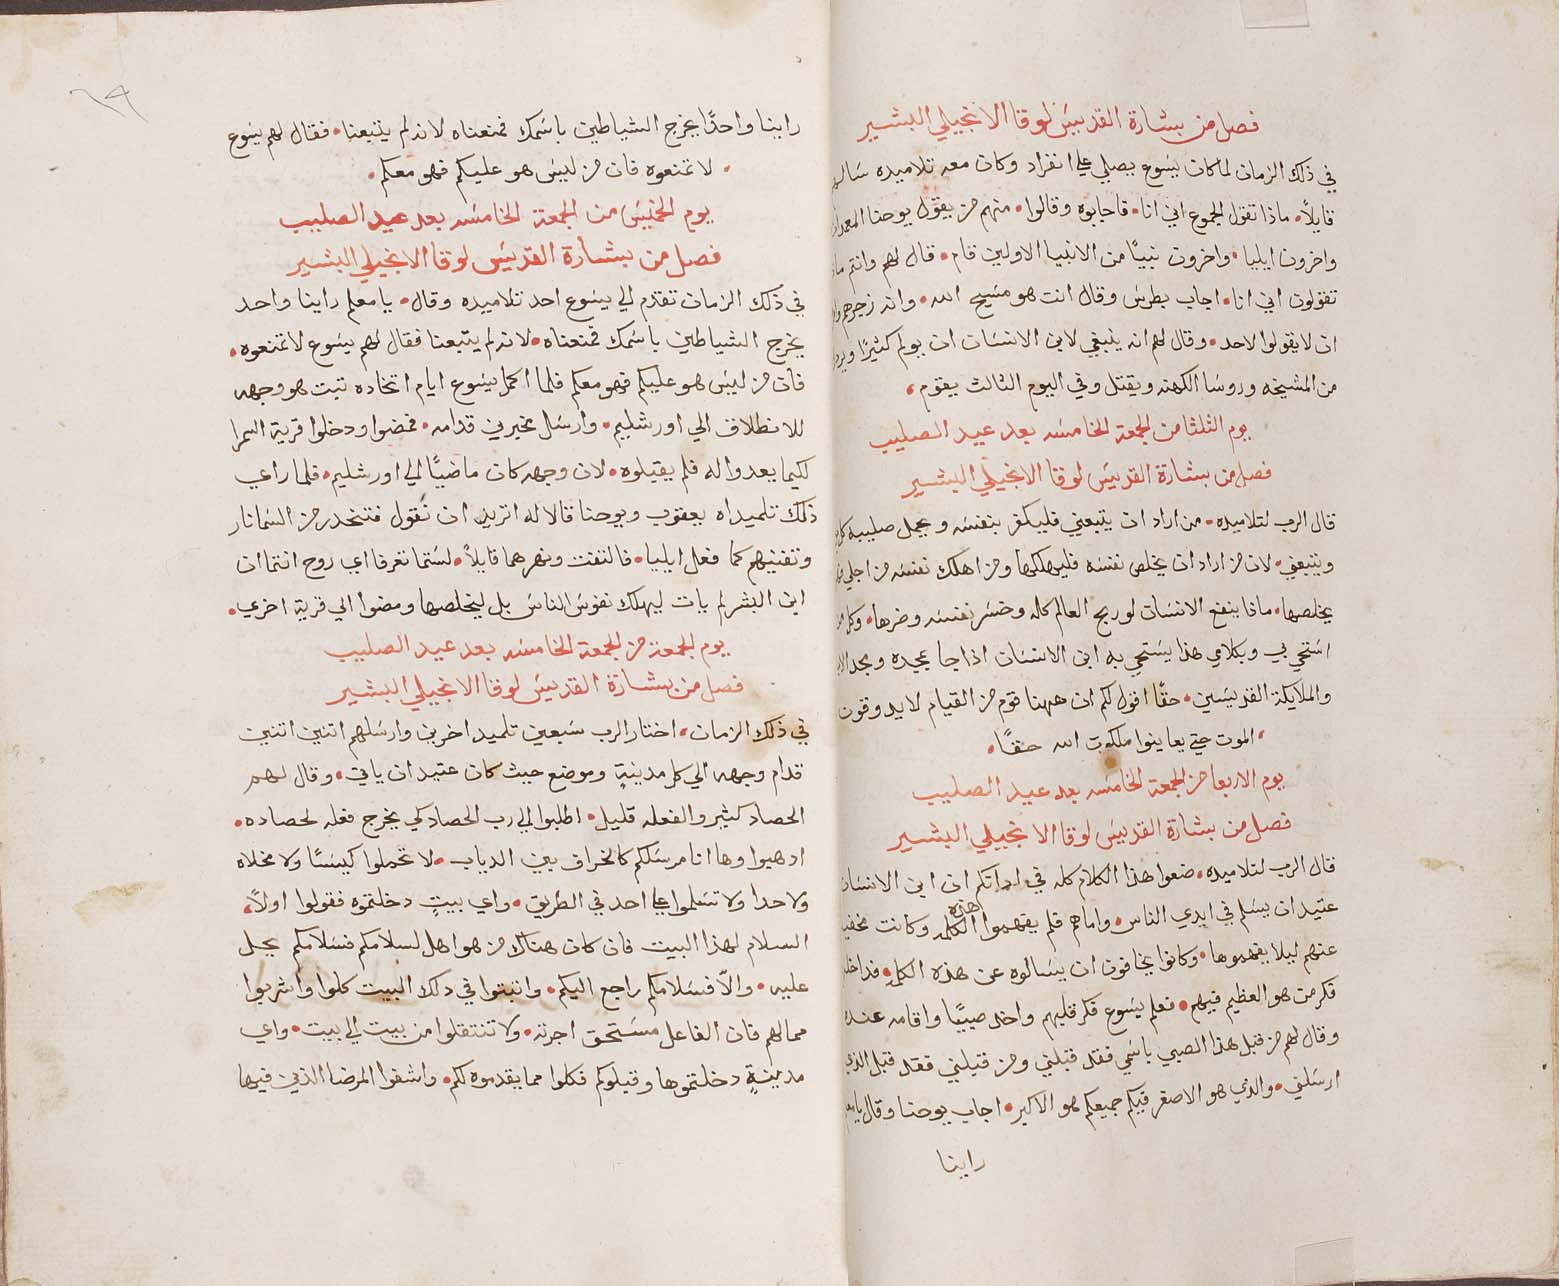 فصل من بشارة القديس لوقا الانجيلي البشير
في ذلك الزمان لما كان يسوع يصلي علي انفراد وكان معه تلاميده
قايلاً. ماذا تقول الجموع اني انا. فاجابوه وقالوا. منهم من يقول يوحنا
واخرون ايليا. واخرون نبيًا من الانبيا الاولين قام. قال لهم وانتم
تقولون اني انا. اجاب بطرس وقال انت هو مسيح الله. وانه زجرهم
ان لا يقولوا لاحد. وقال لهم انه ينبغي لابن الانسان ان يولم كثيرًا
من المشيخه وروسا الكهنه ويقتل وفي اليوم الثالث يقوم.
يوم الثلثا من الجمعة الخامسه بعد عيد الصليب
فصل من بشارة القديس لوقا الانجيلي البشير
قال الرب لتلاميده. من اراد ان يتبعني فليكفر بنفسه ويحمل صليبه
ويتبعني. لان من اراد ان يخلص نفسه فليهلكها ومن اهلك نفسه من اجلي
يخلصها. ماذا ينفع الانسان لو ربح العالم كله وخسر نفسه وضرها.
استحي بي وبكلامي هذا يستحي به ابن الانسان اذا جا بمجده
والملايكة القديسين. حقًا اقول لكم ان ههنا قوم من القيام لا يدوقون
الموت حتي يعاينوا ملكوت الله حقًا.
يوم الاربعا من الجمعة الخامسه بعد عيد الصليب
فصل من بشارة القديس لوقا الانجيلي البشير
قال الرب لتلاميده. ضعوا هذا الكلام كله في ادانكم ان ابن الانسان
عتيد ان يسلم في ايدي الناس. واما هم فلم يفهموا هذه الكلمه وكانت
عنهم ليلا يفهموها. وكانوا يخافون ان يسالوه عن هذه الكلمه.
فكر من هو العظيم فيهم. فعلم يسوع فكر قلبهم واخد صبيًا واقامه عنده
وقال لهم من قبل هذا الصبي باسمي فقد قبلني ومن قبلني فقد قبل الذي
ارسلني. والدي هو الاصغر فيكم جميعكم هو الاكبر. اجاب يوحنا وقال
راينا
راينا واحدًا يخرج الشياطين باسمك فمنعناه لانه لم يتبعنا. فقال لهم يسوع
لا تمنعوه فان من ليس هو عليكم فهو معكم.
يوم الخميس من الجمعة الخامسه بعد عيد الصليب
فصل من بشارة القديس لوقا الانجيلي البشير
في ذلك الزمان تقدم الي يسوع احد تلاميده وقال. يا معلم راينا واحد
يخرج الشياطين باسمك فمنعناه. لانه لم يتبعنا فقال لهم يسوع لا تمنعوه.
فان من ليس هو عليكم فهو معكم فلما اكمل يسوع ايام اتخاده تبت هو وجهه
للانطلاق الي اورشليم. وارسل مخبرين قدامه. فمضوا ودخلوا قرية السمرا
لكيما يعدوا له فلم يقبلوه. لان وجهه كان ماضيًا الي اورشليم. فلما راي
ذلك تلميداه يعقوب ويوحنا قالا له اتريد ان نقول فتنحدر من السما نار
وتفنيهم كما فعل ايليا. فالتفت ونهرهما قايلاً. لستما تعرفا اي روح انتما ان
ابن البشر لم يات ليهلك نفوس الناس بل ليخلصها ومضوا الي قرية اخري.
يوم الجمعة من الجمعة الخامسه بعد عيد الصليب
فصل من بشارة القديس لوقا الانجيلي البشير
في ذلك الزمان. اختار الرب سبعين تلميد اخرين وارسلهم اتنين اتنين
قدام وجهه الي كل مدينةٍ وموضع حيث كان عتيد ان ياتي. وقال لهم
الحصاد كثير والفعله قليل. اطلبوا الي رب الحصاد لكي يخرج فعله لحصاده.
ادهبوا وها انا مرسلكم كالخراف بين الدياب. لا تحملوا كيسًا ولا مخلاه
ولا حدا ولا تسلموا علي احد في الطريق. واي بيتٍ دخلتموه فقولوا اولاً.
السلام لهذا البيت فان كان هناك من هو اهل لسلامكم فسلامكم يحل
عليه. والّا فسلامكم راجع اليكم. واثبتوا في دلك البيت كلوا واشربوا
مما لهم فان الفاعل مستحق اجرته. ولا تنتقلوا من بيت الي بيت. واي
مدينةٍ دخلتموها وقبلوكم فكلوا مما يقدموه لكم. واشفوا المرضا الذين فيها